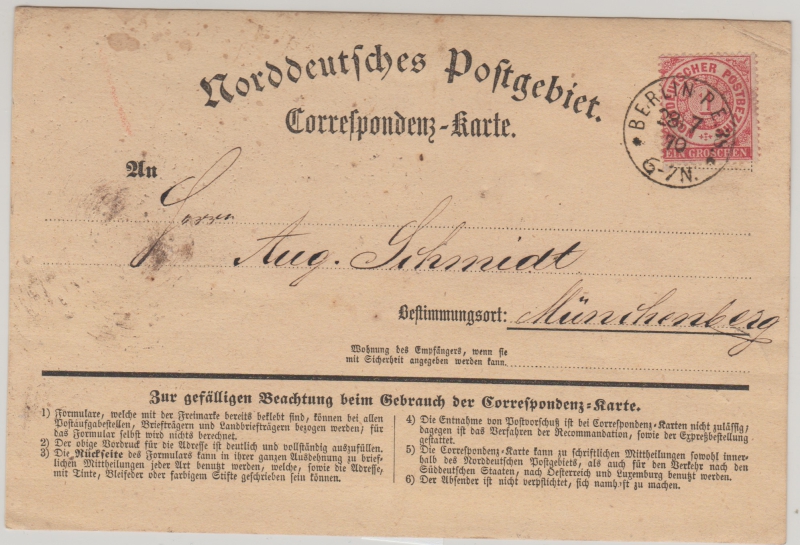 Norddeutsches Postgebiet.
Correspondenz-Karte.
NORDDEUTSCHER POSTBEZIRK
EIN GROSCHEN
BERLIN P.E.
28 7
70
6-7N.
An
Herrn
Aug. Schmidt
Bestimmungsort: Münchenberg
Wohnung des Empfängers, wenn sie
mit Sicherheit angegeben werden kann.
Zur gefälligen Beachtung beim Gebrauch der Correspondenz-Karte.
1) Formulare, welche mit der Freimarke bereits beklebt sind, können bei allen
Postaufgabestellen, Briefträgern und Landbriefträgern bezogen werden; für
das Formular selbst wird nichts berechnet.
2) Der obige Vordruck für die Adresse ist deutlich und vollständig auszufüllen.
3) Die Rückseite des Formulars kann in ihrer ganzen Ausdehnung zu brief-
lichen Mittheilungen jeder Art benutzt werden, welche, sowie die Adresse,
mit Tinte, Bleifeder oder farbigem Stifte geschrieben sein können.
4) Die Entnahme von Postvorschuß ist bei Correspondenz-Karten nicht zulässig,
dagegen ist das Verfahren der Recommandation, sowie der Expreßbestellung
gestattet.
5) Die Correspondenz-Karte kann zu schriftlichen Mittheilungen sowohl inner-
halb des Norddeutschen Postgebiets, als auch für den Verkehr nach den
Süddeutschen Staaten, nach Oesterreich und Luxemburg benutzt werden.
6) Der Absender ist nicht verpflichtet, sich namhaft zu machen.